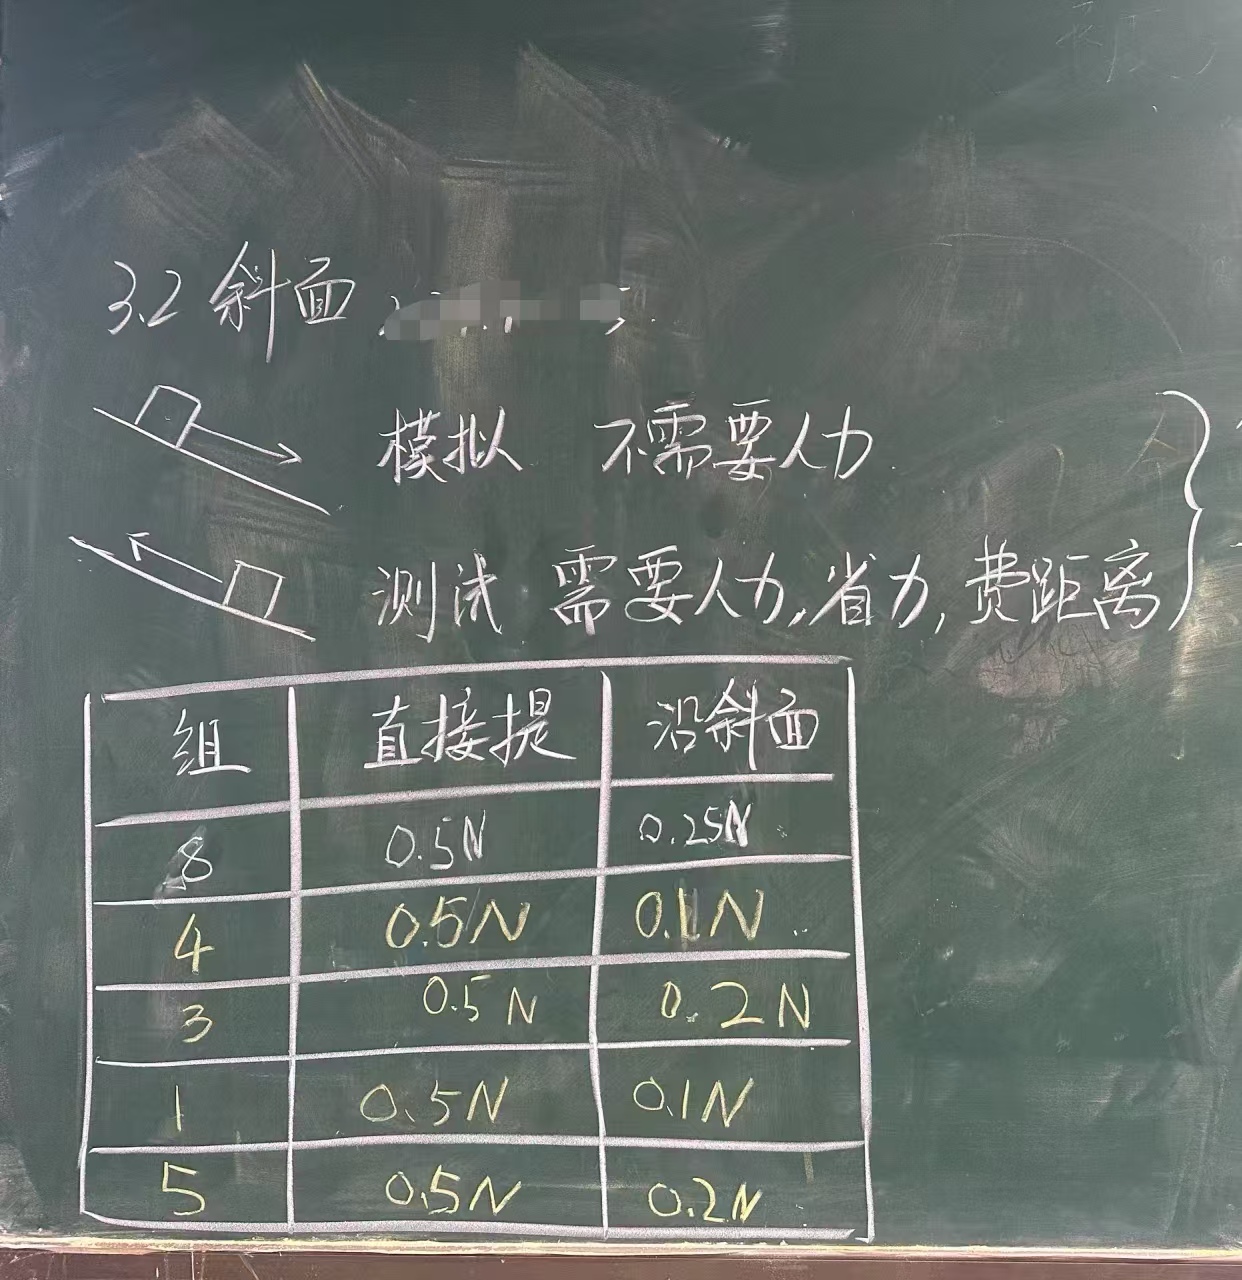 3.2 斜面
模拟 不需要人力
测试 需要人力,省力,费距离
组 直接提 沿斜面
8 0.5N 0.25N
4 0.5N 0.1N
3 0.5N 0.2N
1 0.5N 0.1N
5 0.5N 0.2N